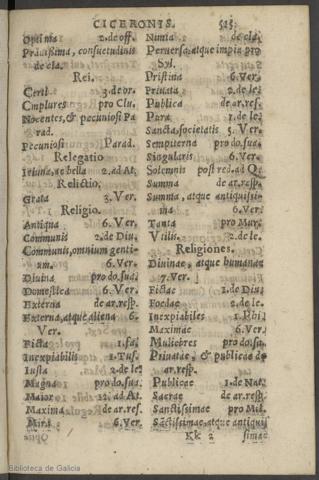 CICERONIS. 525
Optima 2. de off.
Probatissima, consuetudinis
de cla.
Rei.
Certi 3. de or.
Cmplures pro Clu.
Nocentes, & pecuniosi Pa
rad.
Pecuniosi Parad.
Relegatio
Ieiuna, ac bella 2. ad At.
Relictio,
Grata 3. Ver.
Religio.
Antiqua 6. Ver.
Communis 2. de Diu.
Communis, omnium genti-
um. 6. Ver.
Diuina pro do. sua.
Domestica 6. Ver.
Externa de ar. resp.
Externa, atque aliena 6.
Ver.
Ficta 1. fa.
Inexpiabilis 1. Tus.
Iusta 2. de le.
Magna pro do. sua.
Maior 12. ad At.
Maxima de ar. ref.
Mira 6. Ver.
Optio
Nimia de cla.
Peruersa, atque impia pro
Syl.
Pristina 6. Ver.
Priuata 2. de le.
Publica de ar. ref.
Pura 1. de le.
Sancta, societatis 5. Ver.
Sempiterna pro do. sua.
Singularis 6. Ver.
Solemnis post red. ad Q.
Summa de ar. resp.
Summa, atque antiquissi-
ma 6. Ver.
Tanta pro Mur.
Vilis. 2. de le.
Religiones.
Diuinae, atque humanae
7. Ver.
Fictae 1. de Diu.
Foedae 2. de le.
Inexpiabiles 1. Phi.
Maximae 6. Ver.
Mulieores pro do. su.
Priuatae, & publicae de
ar. resp.
Publicae 1. de Nat.
Sacrae de ar. resp.
Sanctissimae pro Mil.
Sãctissimae, atque antiquis
Kk 2 simae
Biblioteca de Galicia